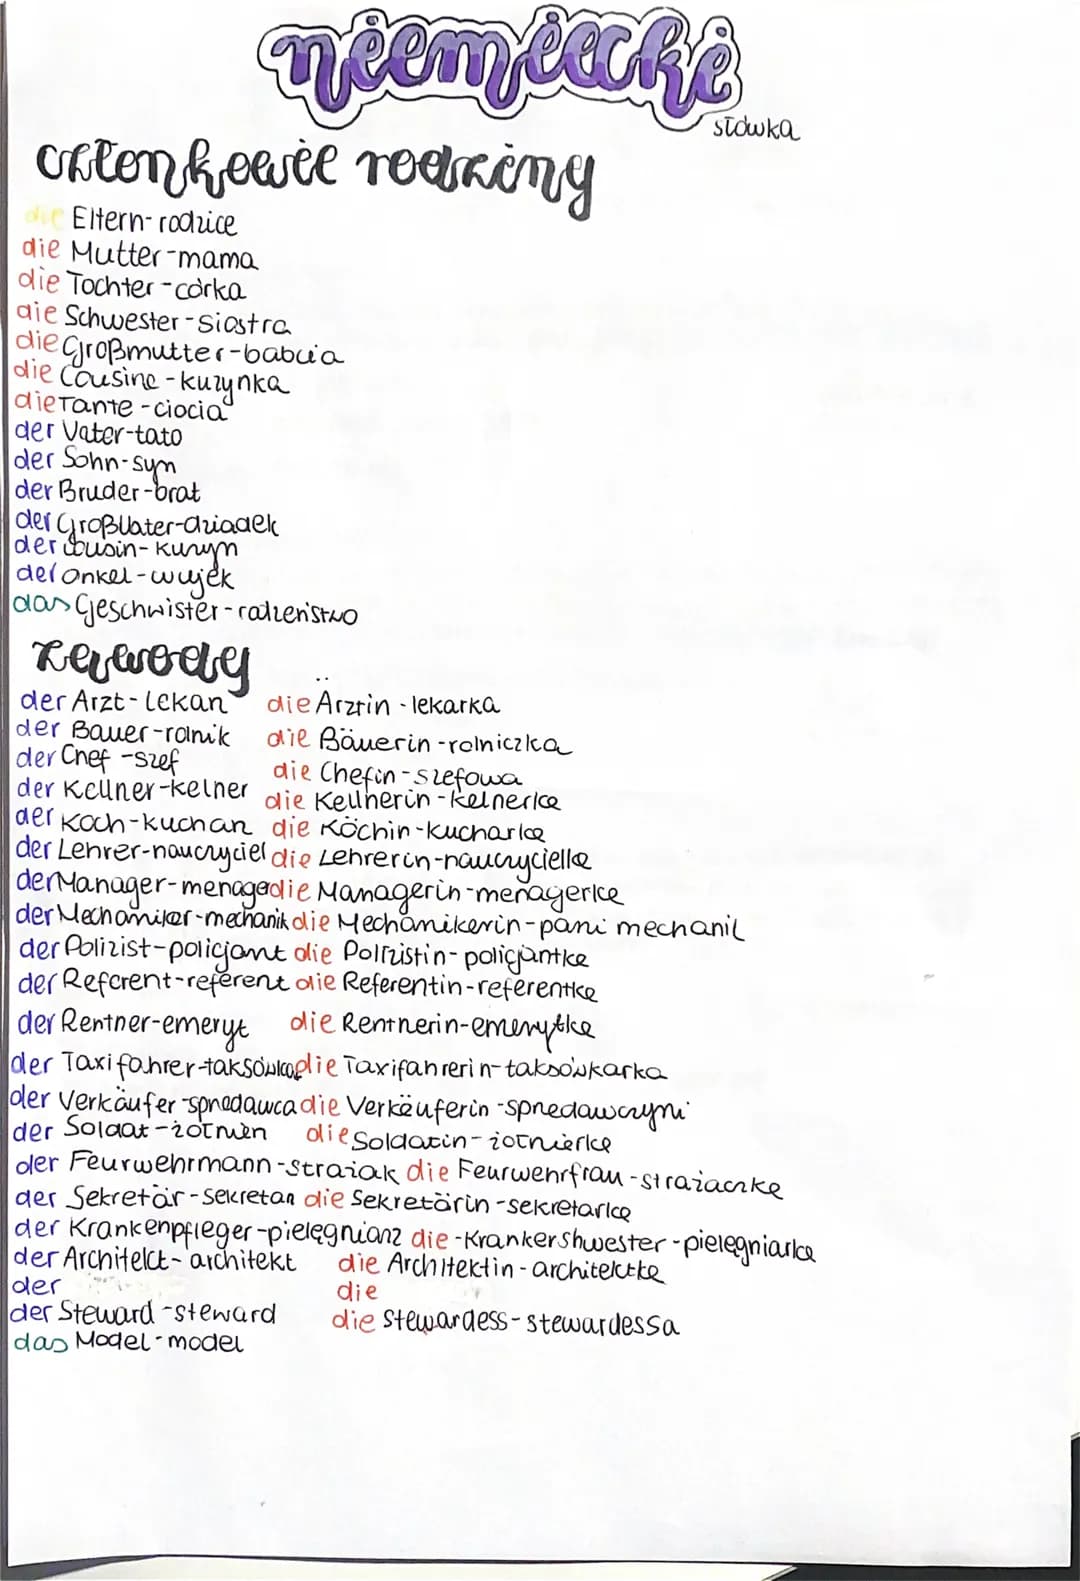 niemiecki
słówka
członkowie rodziny
die Eltern-rodzice
die Mutter-mama
die Tochter-córka
die Schwester-siostra
die Großmutter-babcia
die Cousine-kuzynka
die Tante-ciocia
der Vater-tato
der Sohn-syn
der Bruder-brat
der Großvater-dziadek
der Cousin-kuzyn
der Onkel-wujek
das Geschwister-rodzeństwo
zawody
der Arzt-lekarz die Ärztin-lekarka
der Bauer-rolnik die Bäuerin-rolniczka
der Chef-szef die Chefin-szefowa
der Kellner-kelner die Kellnerin-kelnerka
der Koch-kucharz die Köchin-kucharka
der Lehrer-nauczyciel die Lehrerin-nauczycielka
der Manager-menager die Managerin-menagerka
der Mechaniker-mechanik die Mechanikerin-pani mechanik
der Polizist-policjant die Polizistin-policjantka
der Referent-referent die Referentin-referentka
der Rentner-emeryt die Rentnerin-emerytka
der Taxifahrer-taksówkarz die Taxifahrerin-taksówkarka
der Verkäufer-sprzedawca die Verkäuferin-sprzedawczyni
der Soldat-żołnierz die Soldatin-żołnierka
der Feurwehrmann-strażak die Feurwehrfrau-strażaczka
der Sekretär-sekretarz die Sekretärin-sekretarka
der Krankenpfleger-pielęgniarz die-Krankershwester-pielęgniarka
der Architekt-architekt die Architektin-architektka
der die
der Steward-steward die Stewardess-stewardessa
das Model-model